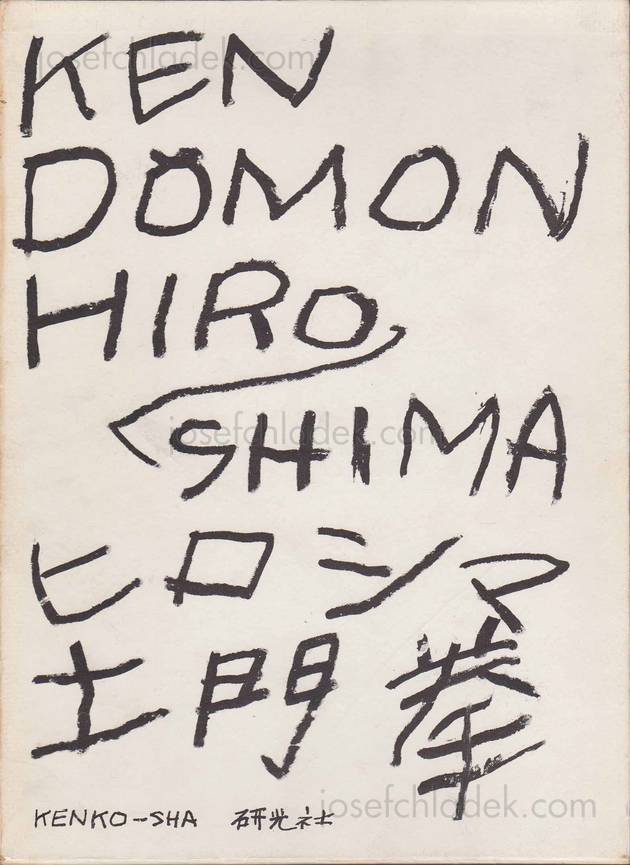 KEN
DOMON
HIRO
SHIMA
ヒロシマ
土門拳
KENKO-SHA 研光社
josefchladek.com
josefchladek.com
josefchladek.com